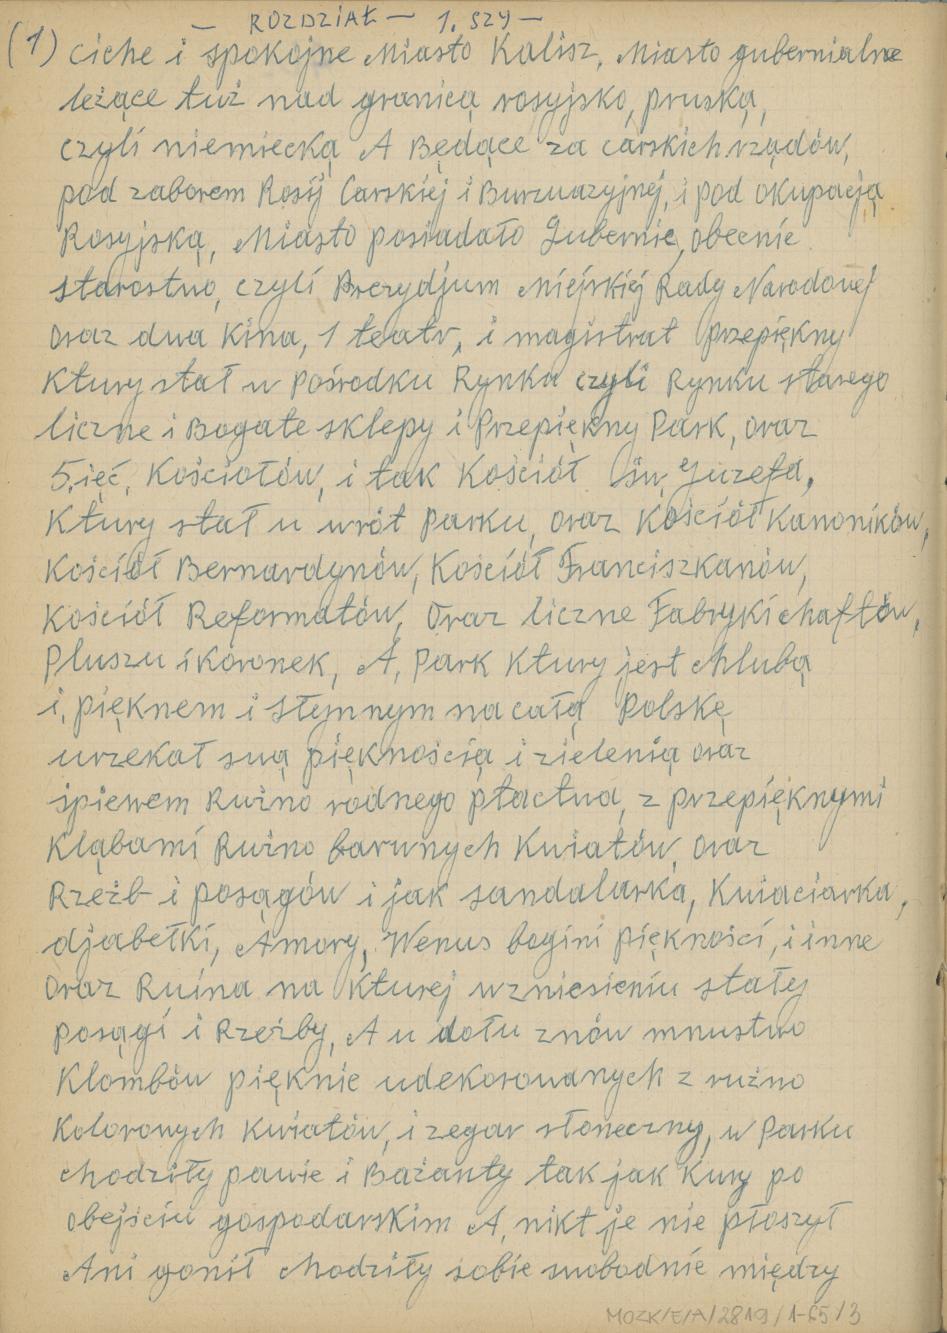 — ROZDZIAŁ — 1. SZY —
(1) Ciche i spokojne Miasto Kalisz, Miasto gubernialne
leżące tuż nad granicą rosyjsko, pruską,
czyli niemiecką A Będące za carskich rządów,
pod zaborem Rosij Carskiej i Burzuazyjnej, i pod okupacją
Rosyjską, Miasto posiadało Gubernie, obecnie
starostwo, czyli Prezydjum Miejskiej Rady Narodowej
oraz dwa Kina, 1 teatr, i magistrat przepiękny
Ktury stał w pośrodku Rynku czyli Rynku starego
liczne i Bogate sklepy i Przepiękny Park, oraz
5,ięć, Kościołów, i tak Kościół Św, Juzefa,
Ktury stał u wrót Parku, oraz Kościół Kanoników,
Kościół Bernardynów, Kościół Franciszkanów,
Kościół Reformatów, Oraz liczne Fabryki chaftów,
Pluszu i Koronek, A, Park Ktury jest Chlubą
i, pięknem i słynnym na całą Polskę
urzekał swą pięknością i zielenią oraz
śpiewem Rużno rodnego ptactwa, z przepięknymi
Kląbami Rużno barwnych Kwiatów, oraz
Rzeźb i posągów i jak sandalarka, Kwiaciarka,
djabełki, Amory, Wenus bogini piękności, i inne
oraz Ruina na Kturej wzniesieniu stały
posągi i Rzeźby, A u dołu znów mnustwo
Klombów pięknie udekorowanych z rużno
Kolorowych Kwiatów, i zegar słoneczny, w Parku
chodziły pawie i Bażanty tak jak Kury po
obejściu gospodarskim A, nikt je nie płoszył
Ani gonił chodziły sobie swobodnie między
MOZK/E/A/2819/1-65/3